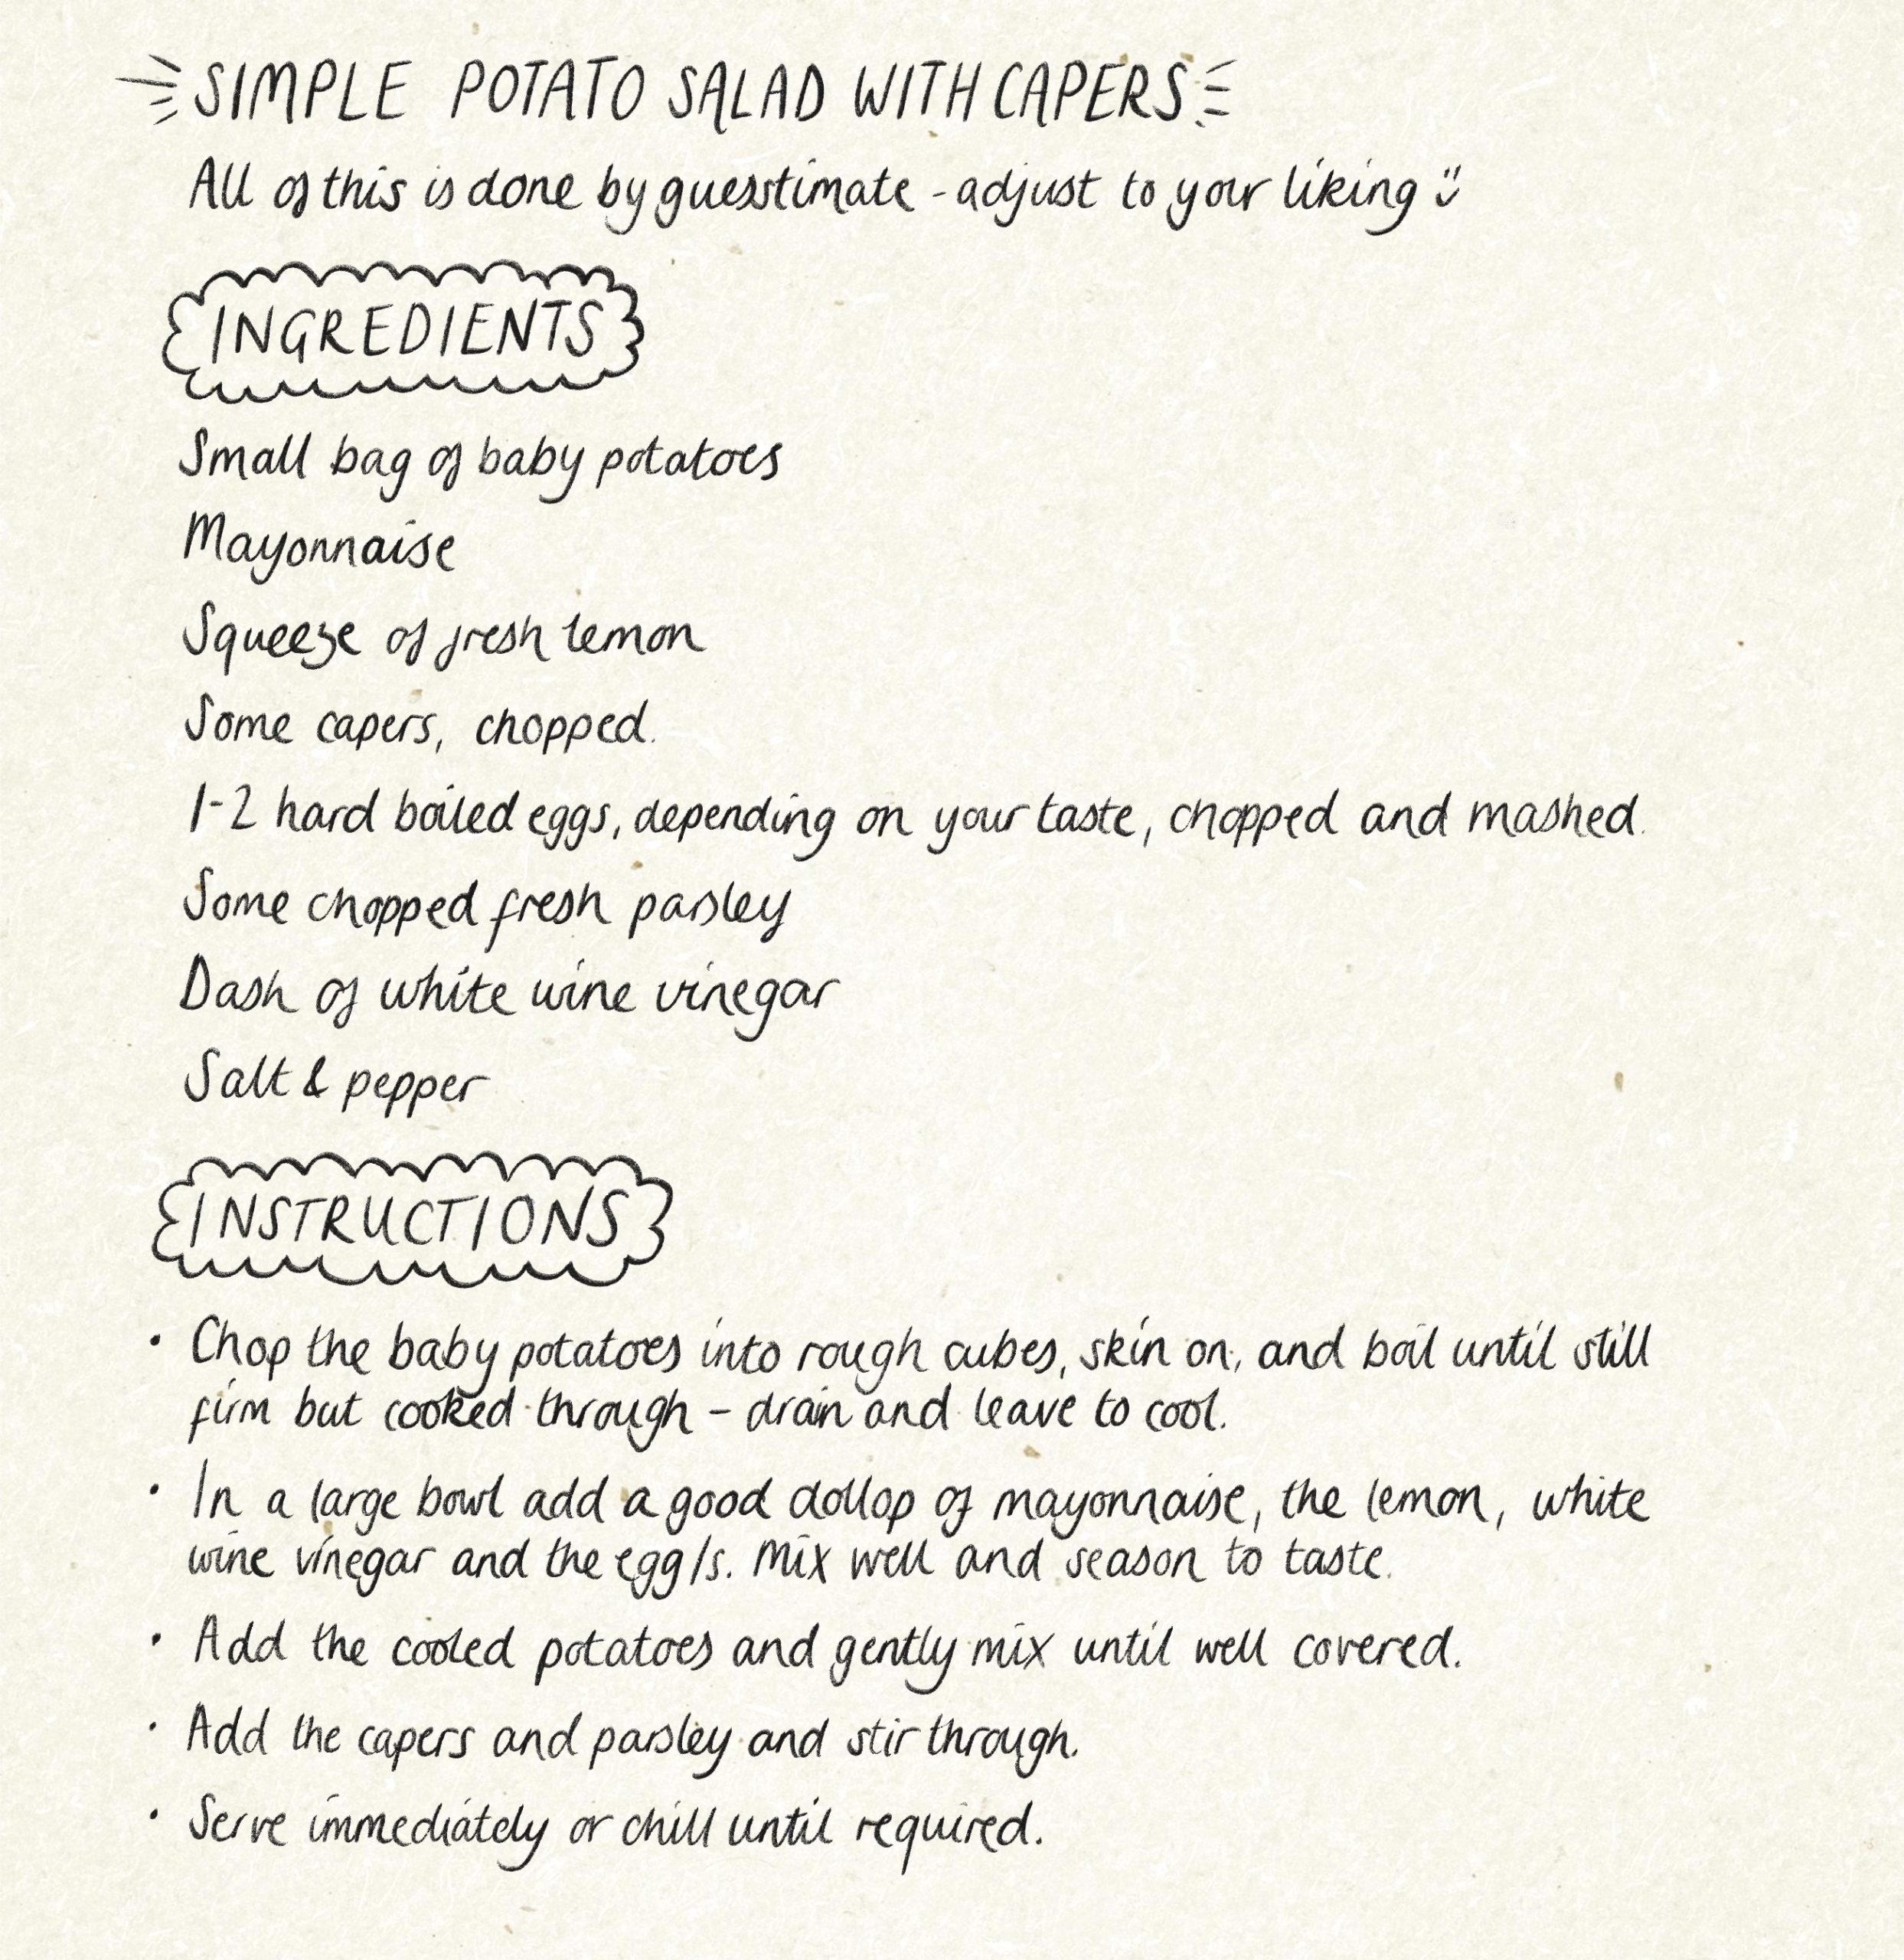 SIMPLE POTATO SALAD WITH CAPERS
All of this is done by guesstimate - adjust to your liking ü
INGREDIENTS
Small bag of baby potatoes
Mayonnaise
Squeeze of fresh lemon
Some capers, chopped.
1-2 hard boiled eggs, depending on your taste, chopped and mashed.
Some chopped fresh parsley
Dash of white wine vinegar
Salt & pepper
INSTRUCTIONS
• Chop the baby potatoes into rough cubes, skin on, and boil until still
firm but cooked through - drain and leave to cool.
• In a large bowl add a good dollop of mayonnaise, the lemon, white
wine vinegar and the egg/s. Mix well and season to taste.
• Add the cooled potatoes and gently mix until well covered.
• Add the capers and parsley and stir through.
• Serve immediately or chill until required.